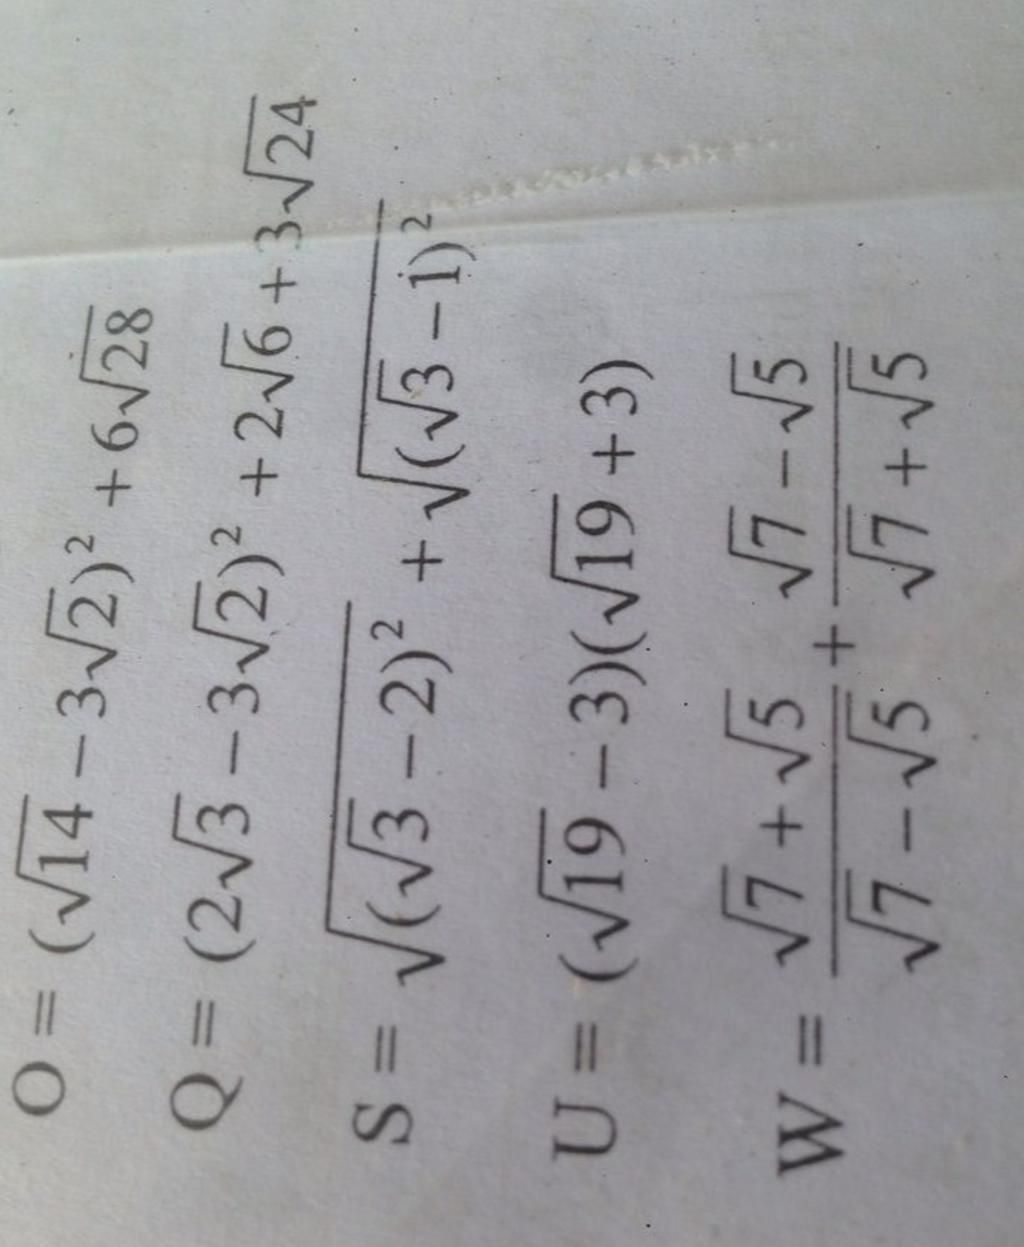 O = (√14 − 3√2)² + 6√28
Q = (2√3 − 3√2)² + 2√6 + 3√24
S = √(√3 − 2)² + √(√3 − 1)²
U = (√19 − 3)(√19 + 3)
W = (√7 + √5)/(√7 − √5) + (√7 − √5)/(√7 + √5)